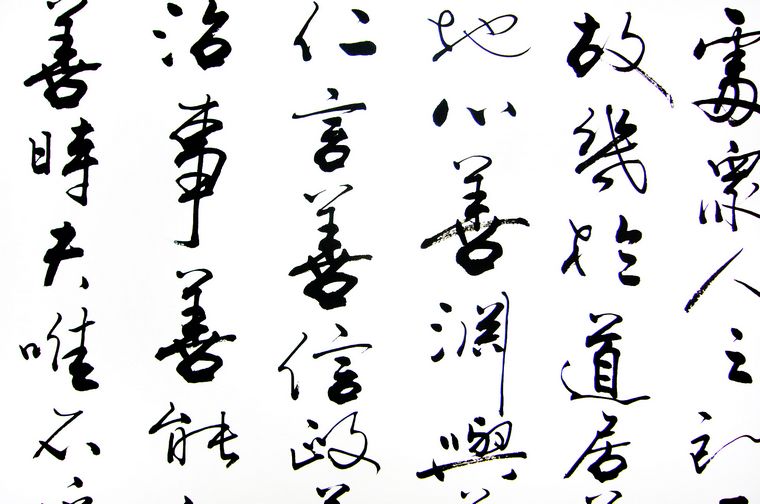 處眾人之所
故幾於道居
地心善淵與
仁言善信政
治事善能
善時夫唯不